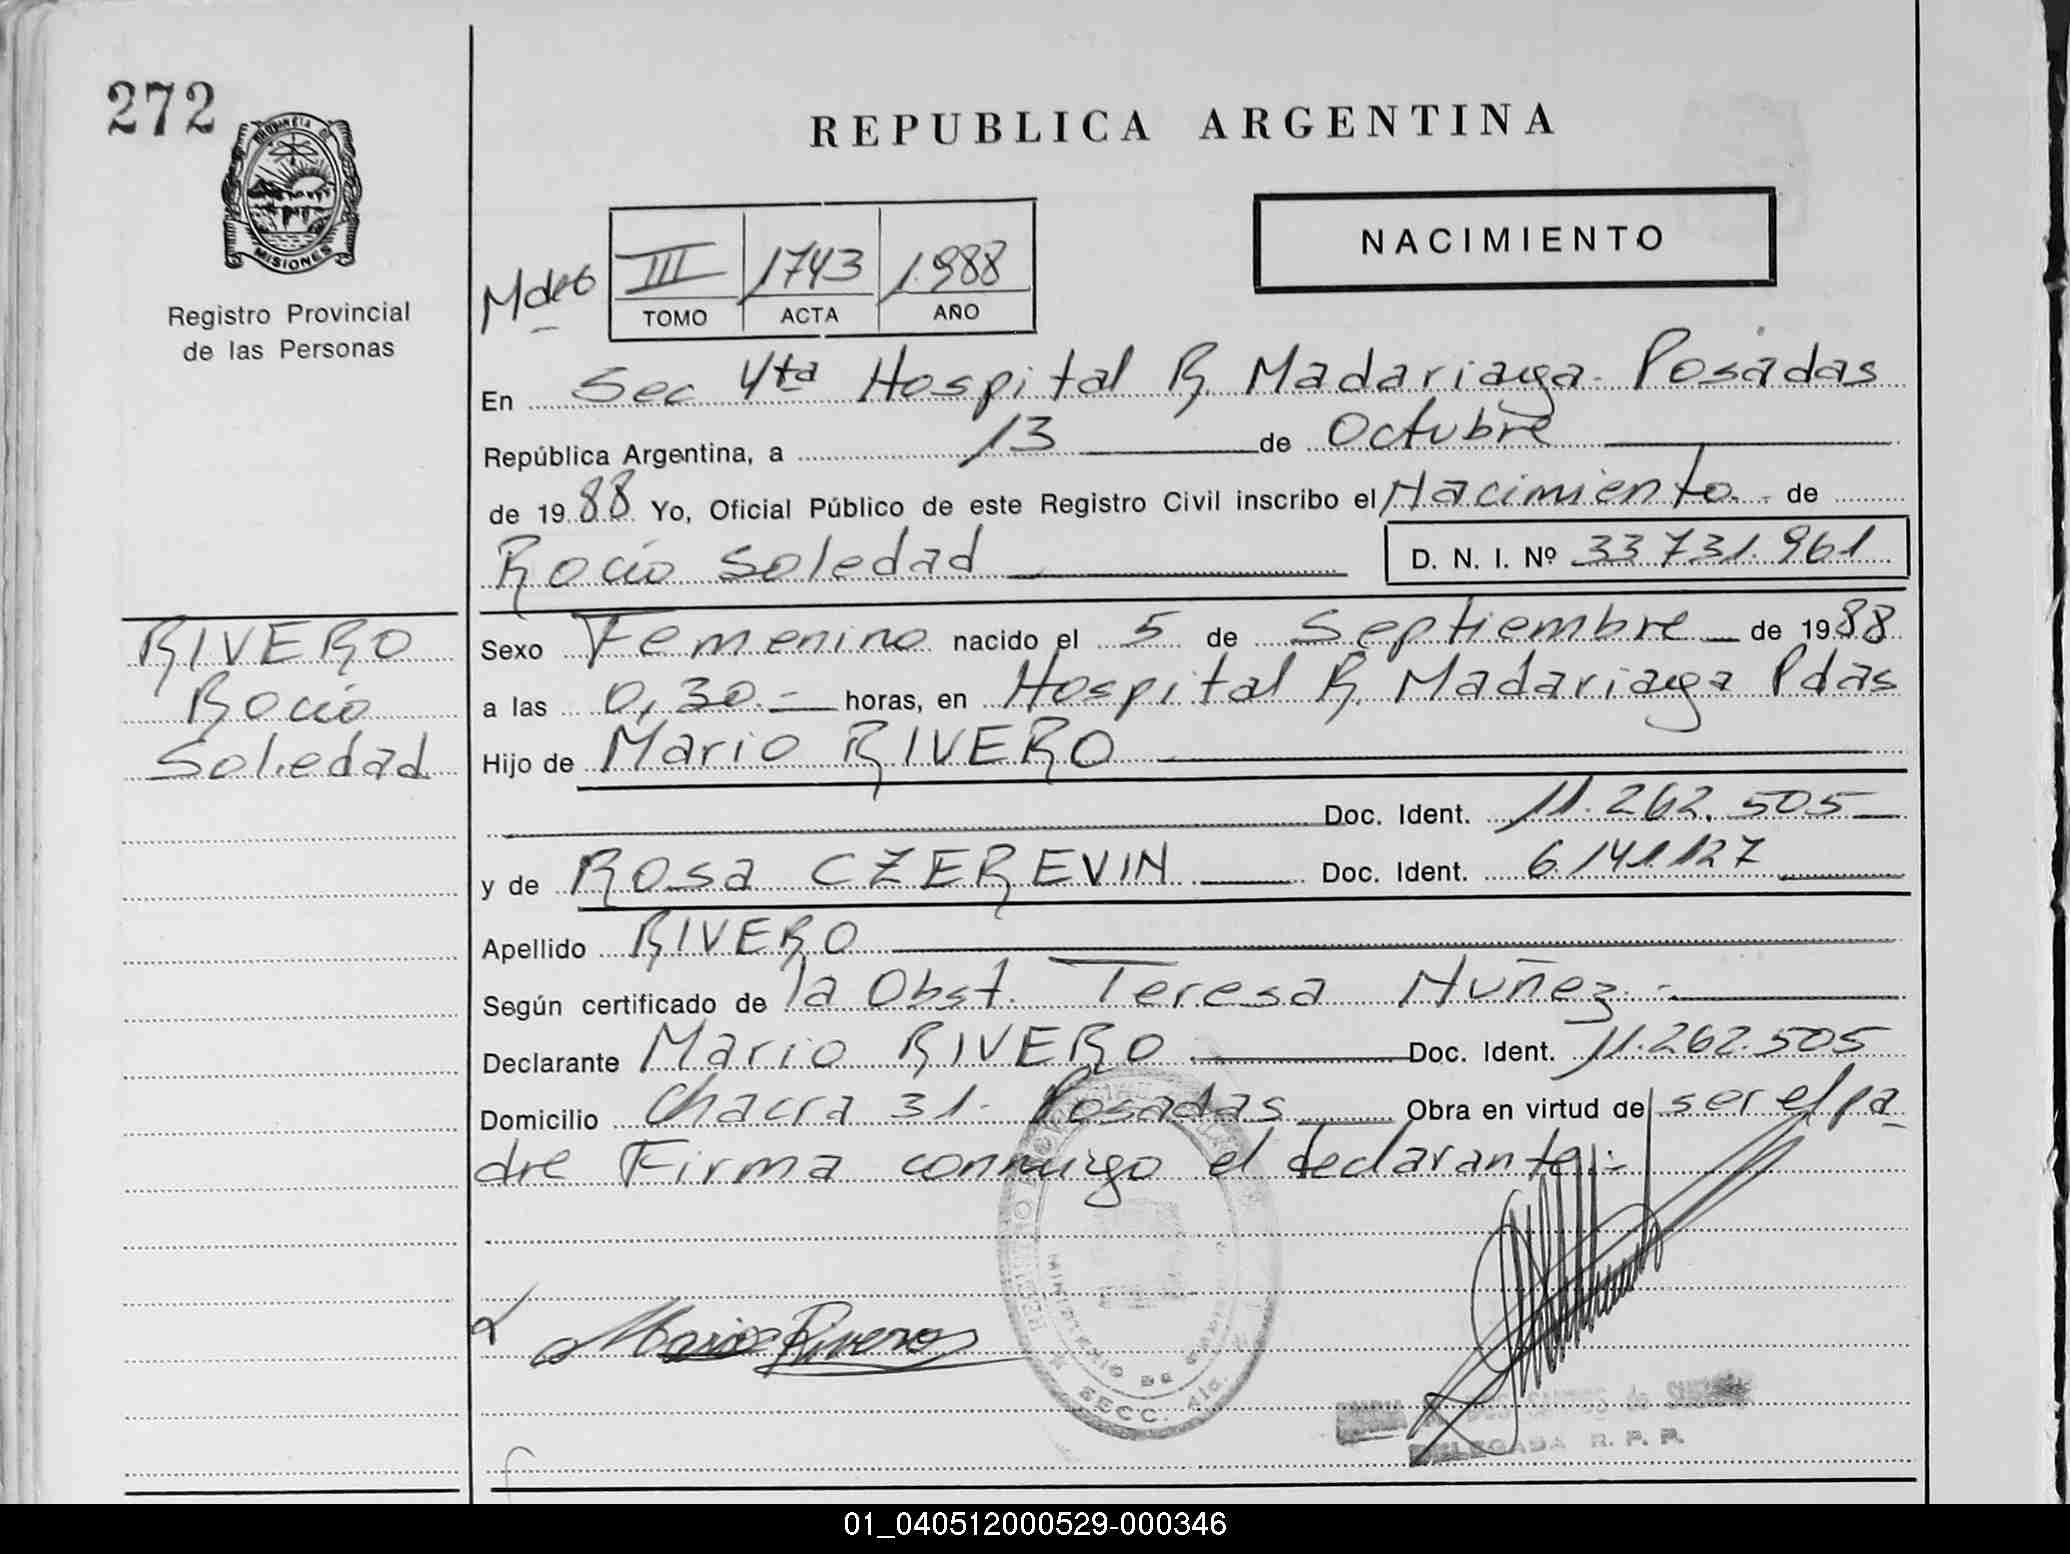 272
PROVINCIA DE
MISIONES
Registro Provincial
de las Personas
REPUBLICA ARGENTINA
NACIMIENTO
III 1743 1.988
TOMO ACTA AÑO
En Sec 4ta Hospital R. Madariaga. Posadas
República Argentina, a 13 de Octubre
de 1988 Yo, Oficial Público de este Registro Civil inscribo el Nacimiento.- de
Rocío Soledad D. N. I. Nº 33.731.961
RIVERO
Rocío
Soledad
Sexo Femenino nacido el 5 de Septiembre de 1988
a las 0,30.- horas, en Hospital R. Madariaga Pdas
Hijo de Mario RIVERO
Doc. Ident. 11.262.505
y de Rosa CZEREVIN Doc. Ident. 6.141.127
Apellido RIVERO
Según certificado de la Obst. Teresa Nuñez.-
Declarante Mario RIVERO Doc. Ident. 11.262.505
Domicilio Chacra 31- Posadas Obra en virtud de ser el pa
dre Firma conmigo el declarante.-
Mario Rivero
MINISTERIO DE
SECC. 4ta.
DELEGADA R. P. P.
01_040512000529-000346